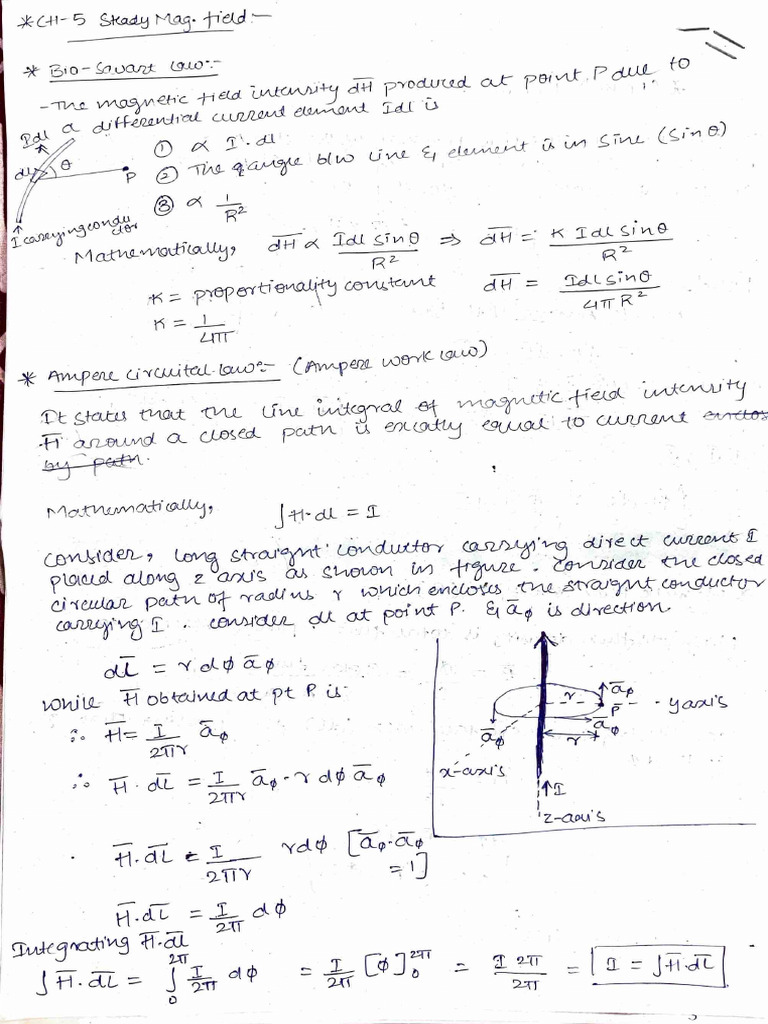 * CH-5 Steady Mag. field:-
* Bio-Savart law:-
-The magnetic field intensity dH̅ produced at point P due to
a differential current element Idl is
Idl
① ∝ I·dl
② The angle b/w line & element is in sine (sin θ)
dl θ P
③ ∝ 1/R²
I carrying condu
ctor
Mathematically, dH̅ ∝ Idl sinθ/R² ⇒ dH̅ = K Idl sinθ/R²
K = proportionality constant dH̅ = Idl sinθ/4π R²
K = 1/4π
* Ampere circuital law:- (Ampere work law)
It states that the line integral of magnetic field intensity
H̅ around a closed path is excatly equal to current enclos
by path.
Mathematically, ∫H·dl = I
consider, long straight conductor carrying direct current I
placed along z axis as shown in figure. consider the closed
circular path of radius r which encloses the straight conductor
carrying I. consider dl at point P. & a̅ϕ is direction.
dl̅ = r dϕ a̅ϕ
while H̅ obtained at pt P is
∴ H̅ = I/2πr a̅ϕ
∴ H̅ · dL̅ = I/2πr a̅ϕ · r dϕ a̅ϕ
H̅ · dL̅ = I/2πr rdϕ [a̅ϕ·a̅ϕ
= 1]
H̅ · dL̅ = I/2π dϕ
r a̅ϕ
P̅ - yaxis
a̅ϕ a̅ϕ
r
x-axis
↑I
z-axis
Integrating H̅·dl̅
∫H̅·dL̅ = ∫₀^2π I/2π dϕ = I/2π [ϕ]₀^2π = I 2π/2π = I = ∫H̅·dL̅